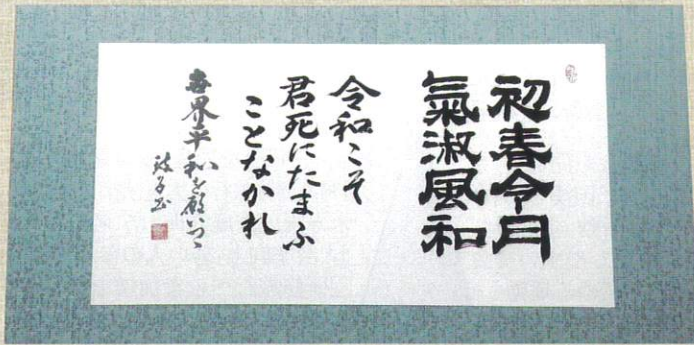 初春令月
氣淑風和
令和こそ
君死にたまふ
ことなかれ
世界平和を願いつつ